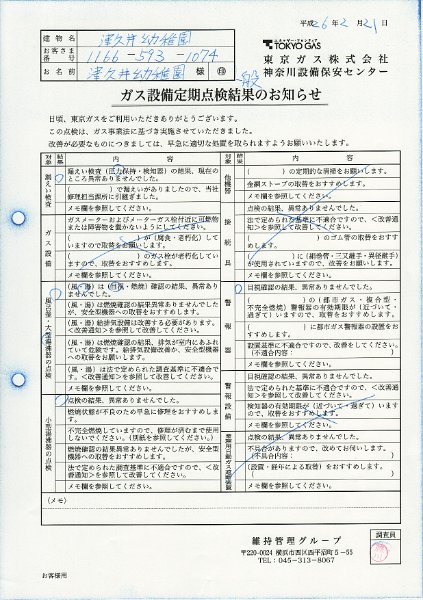 平成 26年 2月 21日
建物名 津久井幼稚園
お客さま番号 1166-593-1074
お名前 津久井幼稚園 様
TOKYO GAS
東京ガス株式会社
神奈川設備保安センター
ガス設備定期点検結果のお知らせ
日頃、東京ガスをご利用いただきありがとうございます。
この点検は、ガス事業法に基づき実施させていただきました。
改善が必要なものにつきましては、早急に適切な処置を取られますようお願いいたします。
対象 結果 内容
漏えい検査
漏えい検査(圧力保持・検知器)の結果、現在のところ異常ありませんでした。
( )で漏えいがありましたので、当社修理担当箇所に引継ぎました。
メモ欄を参照してください。
ガス設備
ガスメーターおよびメーターガス栓付近に可燃物または障害物を置かないようにしてください。
( )が(腐食・老朽化)していますので取替をお願いします。
( )のガス栓が老朽化していますので、取替をおすすめします。
メモ欄を参照してください。
風呂釜・大型湯沸器の点検
(風・湯)は(目視・燃焼)確認の結果、異常ありませんでした。
(風・湯)は燃焼確認の結果異常ありませんでしたが、安全型機器への取替をおすすめします。
(風・湯)給排気設備は改善する必要があります。<改善通知>を参照して改善してください。
(風・湯)は燃焼確認の結果、排気が室内にあふれていて危険です。給排気設備改善か、安全型機器への取替をお願いします。
(風・湯)は法で定められた調査基準に不適合です。<改善通知>を参照して改善してください。
メモ欄を参照してください。
小型湯沸器の点検
点検の結果、異常ありませんでした。
燃焼状態が不良のため早急に修理をおすすめします。
不完全燃焼していますので、修理が済むまで使用しないでください。(別紙を参照してください。)
燃焼確認の結果異常ありませんでしたが、安全型機器への取替をおすすめします。
法で定められた調査基準に不適合ですので、<改善通知>を参照して改善してください。
メモ欄を参照してください。
対象 結果 内容
他機器
( )の定期的な清掃をお願いします。
金網ストーブの取替をおすすめします。
接続具
点検の結果、異常ありませんでした。
法で定められた基準に不適合ですので、<改善通知>を参照して改善してください。
( )のゴム管の取替をおすすめします。
( )に(補強管・三叉継手・異径継手)が使用されていますので、改善をお願いします。
メモ欄を参照してください。
警報器
目視確認の結果、異常ありませんでした。
( )の(都市ガス・複合型・不完全燃焼)警報器の有効期限が(近づいて・過ぎて)いますので、取替をおすすめします。
( )に都市ガス警報器の設置をおすすめします。
設置基準に不適合ですので、改善してください。(不適合内容: )
メモ欄を参照してください。
警報設備
目視確認の結果、異常ありませんでした。
法で定められた基準に不適合ですので、<改善通知>を参照して改善してください。
検知器の有効期限が(近づいて・過ぎて)います。取替をおすすめします。
メモ欄を参照してください。
点検の結果、異常ありませんでした。
不具合がありますので、改めてお伺いします。
(不具合内容: )
(設置・経年による取替)をおすすめします。
メモ欄を参照してください。
(メモ)
維持管理グループ
〒220-0024 横浜市西区西平沼町5-55
TEL:045-313-8067
調査員
お客様用